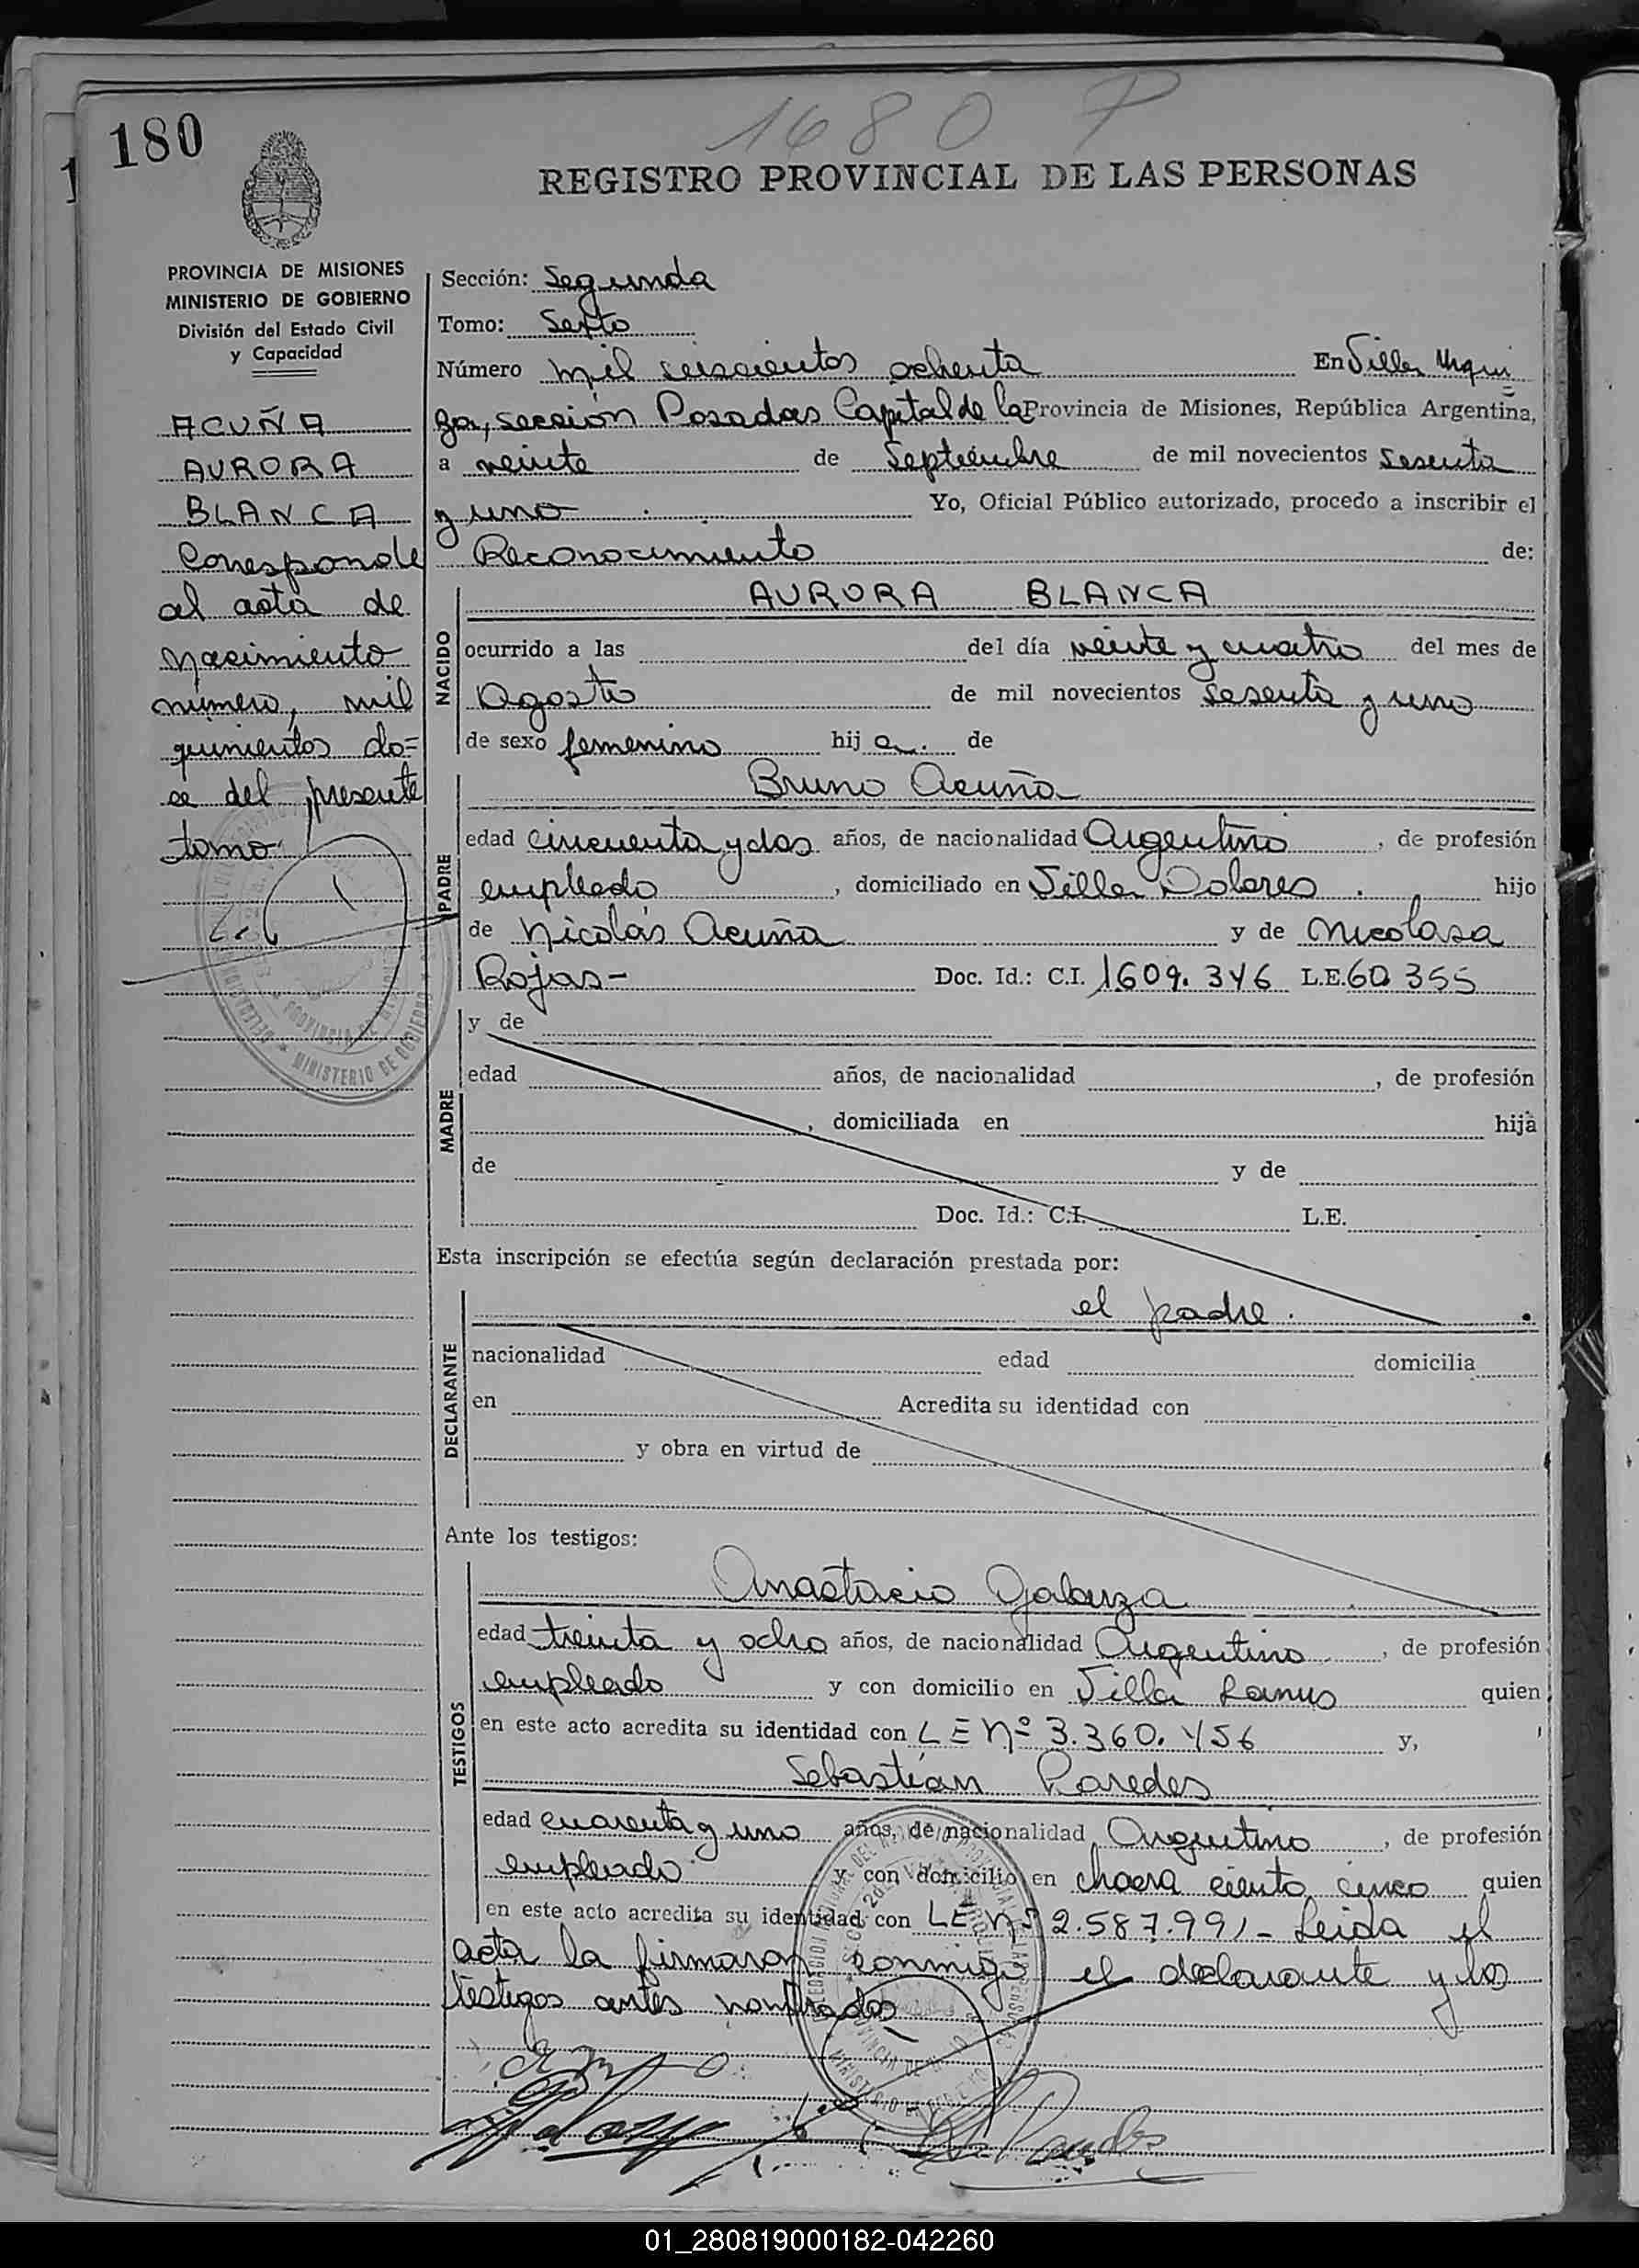 180
1680
REGISTRO PROVINCIAL DE LAS PERSONAS
PROVINCIA DE MISIONES
MINISTERIO DE GOBIERNO
División del Estado Civil
y Capacidad
ACUÑA
AURORA
BLANCA
Corresponde
al acta de
nacimiento
número, mil
quinientos do=
ce del presente
tomo
Sección: Segunda
Tomo: Sexto
Número mil seiscientos ochenta En Villa Urqui
za, sección Posadas Capital de la Provincia de Misiones, República Argentina,
a veinte de Septiembre de mil novecientos sesenta
y uno Yo, Oficial Público autorizado, procedo a inscribir el
Reconocimiento de:
NACIDO
AURORA BLANCA
ocurrido a las del día veinte y cuatro del mes de
Agosto de mil novecientos sesenta y uno
de sexo femenino hij a. de
PADRE
Bruno Acuña
edad cincuenta y dos años, de nacionalidad Argentino, de profesión
empleado, domiciliado en Villa Dolores. hijo
de Nicolás Acuña y de Nicolasa
Rojas- Doc. Id.: C.I. 1609.346 L.E. 60 355
MADRE
y de
edad años, de nacionalidad , de profesión
, domiciliada en hija
de y de
Doc. Id.: C.I. L.E.
Esta inscripción se efectúa según declaración prestada por:
DECLARANTE
el padre.
nacionalidad edad domicilia
en Acredita su identidad con
y obra en virtud de
Ante los testigos:
TESTIGOS
Anastacio Galarza
edad treinta y ocho años, de nacionalidad Argentino, de profesión
empleado y con domicilio en Villa Lanus quien
en este acto acredita su identidad con LE Nº 3.360.456 y,
Sebastián Paredes
edad cuarenta y uno años, de nacionalidad Argentino, de profesión
empleado y con domicilio en chacra ciento cinco quien
en este acto acredita su identidad con LE Nº 2.587.991- Leida el
acta la firmaron conmigo el declarante y los
testigos antes nombrados
01_280819000182-042260